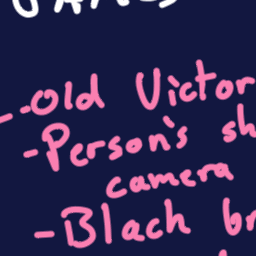 - Old Victor
- Person's sh
camera
- Blach br